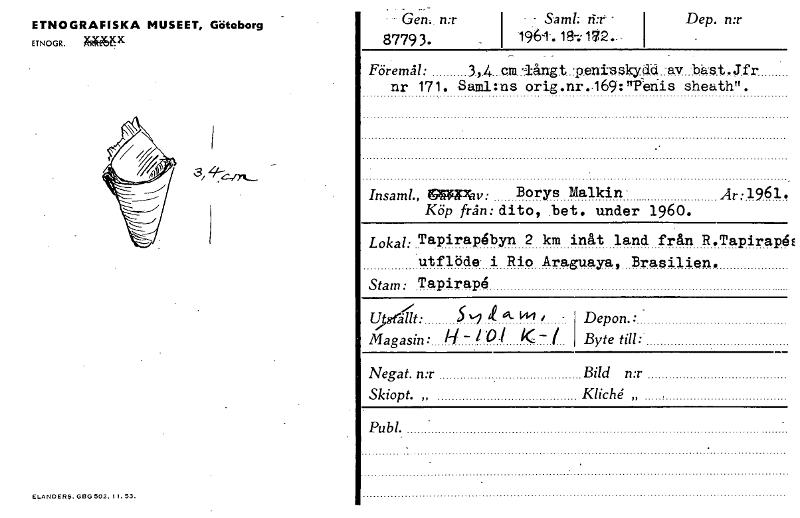 ETNOGRAFISKA MUSEET, Göteborg
ETNOGR.
3,4 cm
ELANDERS. GBG 503. 11. 53.
Gen. n:r Saml. n:r Dep. n:r
87793. 1961.18.172.
Föremål: 3,4 cm långt penisskydd av bast.Jfr
nr 171. Saml:ns orig.nr.169:"Penis sheath".
Insaml., av: Borys Malkin År:1961.
Köp från: dito, bet. under 1960.
Lokal: Tapirapébyn 2 km inåt land från R.Tapirapés
utflöde i Rio Araguaya, Brasilien.
Stam: Tapirapé
Utställt: Sydam. Depon.:
Magasin: H-101 K-1 Byte till:
Negat. n:r Bild n:r
Skiopt. „ Kliché „
Publ.